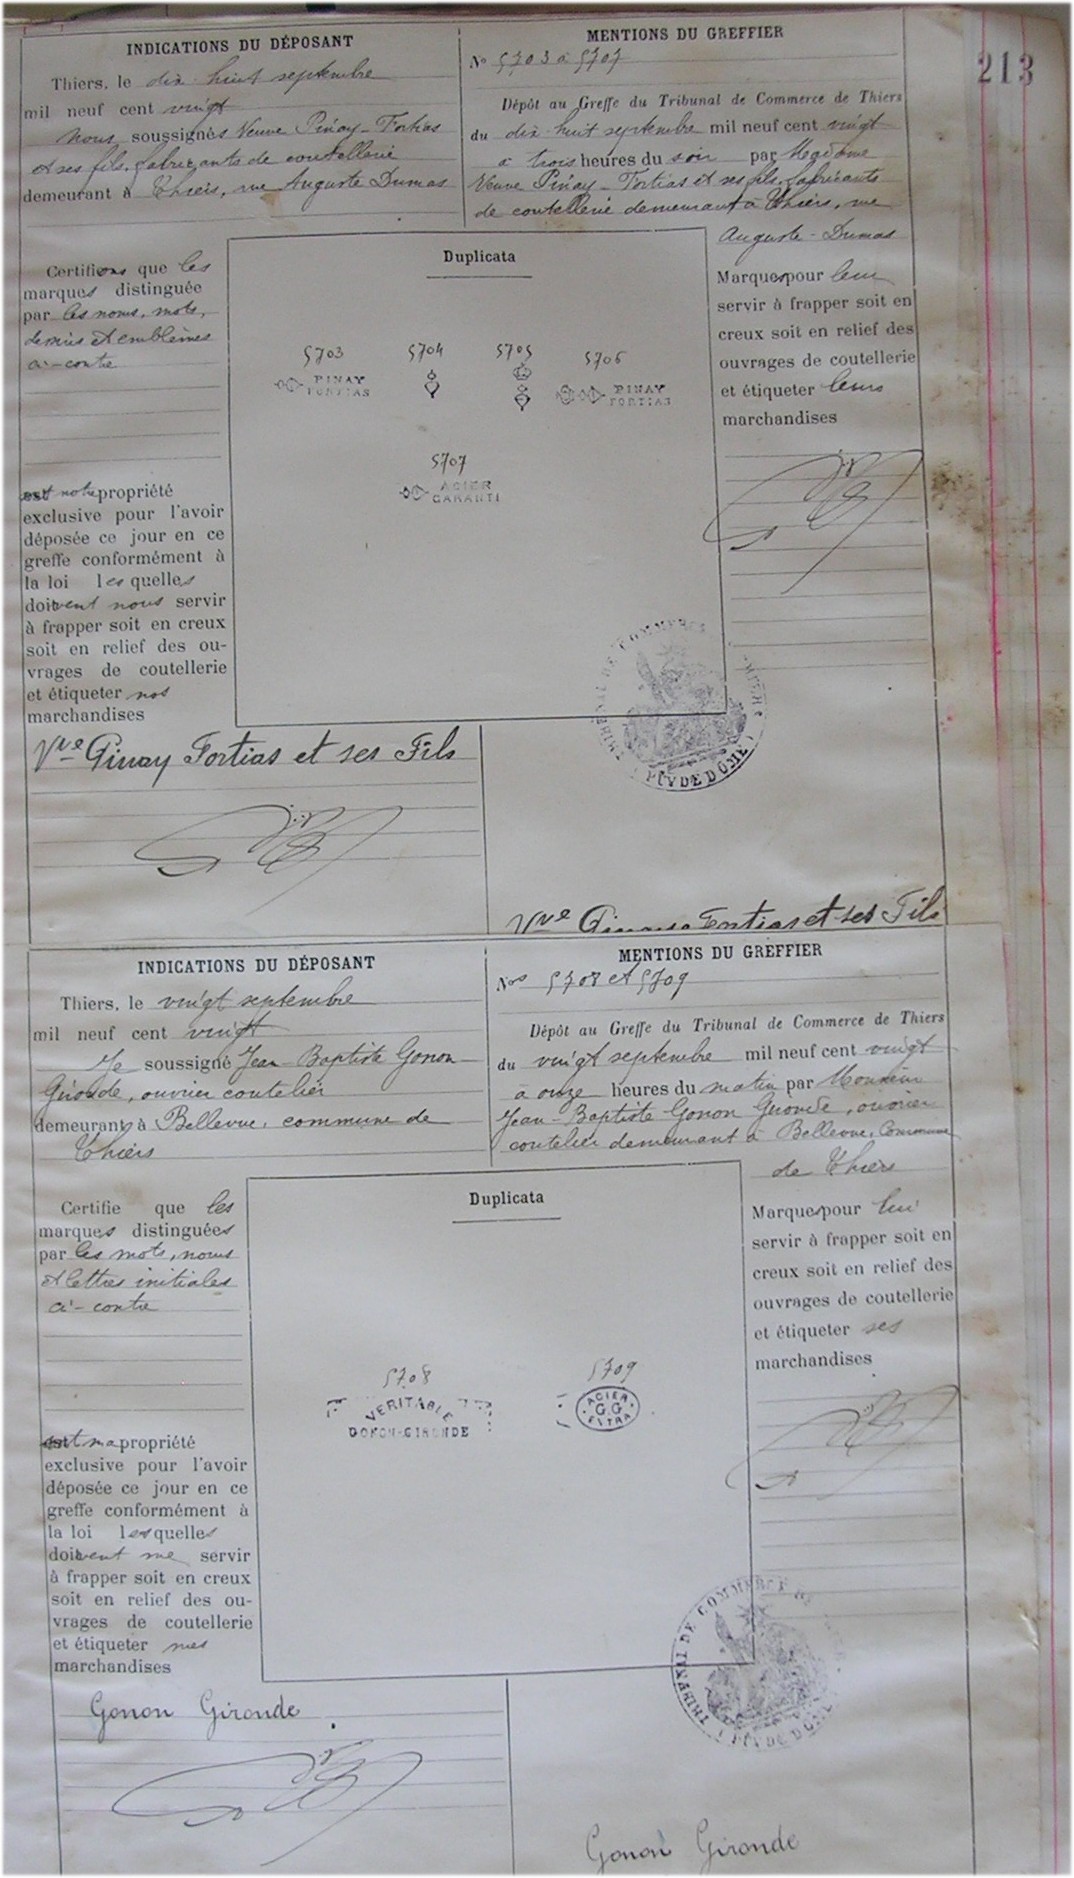 213
INDICATIONS DU DÉPOSANT
Thiers, le dix huit septembre
mil neuf cent vingt
Nous soussignés Veuve Pinay-Fortias
et ses fils, fabricants de coutellerie
demeurant à Thiers, rue Auguste Dumas
MENTIONS DU GREFFIER
No 5703 à 5707
Dépôt au Greffe du Tribunal de Commerce de Thiers
du dix huit septembre mil neuf cent vingt
à trois heures du soir par Madame
Veuve Pinay-Fortias et ses fils, fabricants
de coutellerie demeurant à Thiers, rue
Auguste-Dumas
Certifions que les
marques distinguée
par les noms, mots,
et emblèmes
ci-contre
est notre propriété
exclusive pour l'avoir
déposée ce jour en ce
greffe conformément à
la loi lesquelles
doivent nous servir
à frapper soit en creux
soit en relief des ou-
vrages de coutellerie
et étiqueter nos
marchandises
Duplicata
5703 5704 5705 5706
PINAY
FORTIAS
PINAY
FORTIAS
5707
ACIER
GARANTI
Marques pour leur
servir à frapper soit en
creux soit en relief des
ouvrages de coutellerie
et étiqueter leurs
marchandises
TRIBUNAL DE COMMERCE
(PUY DE DOME)
Vve Pinay Fortias et ses Fils
Vve Pinay Fortias et ses Fils
INDICATIONS DU DÉPOSANT
Thiers, le vingt septembre
mil neuf cent vingt
Je soussigné Jean-Baptiste Gonon-
Gironde, ouvrier coutelier
demeurant à Bellevue, commune de
Thiers
MENTIONS DU GREFFIER
Nos 5708 et 5709
Dépôt au Greffe du Tribunal de Commerce de Thiers
du vingt septembre mil neuf cent vingt
à onze heures du matin par Monsieur
Jean-Baptiste Gonon Gironde, ouvrier
coutelier demeurant à Bellevue, Commune
de Thiers
Certifie que les
marques distinguées
par les mots, noms
et lettres initiales
ci-contre
est ma propriété
exclusive pour l'avoir
déposée ce jour en ce
greffe conformément à
la loi lesquelles
doivent me servir
à frapper soit en creux
soit en relief des ou-
vrages de coutellerie
et étiqueter mes
marchandises
Duplicata
5708 5709
VERITABLE
GONON-GIRONDE
ACIER
G.G
EXTRA
Marques pour lui
servir à frapper soit en
creux soit en relief des
ouvrages de coutellerie
et étiqueter ses
marchandises
TRIBUNAL DE COMMERCE DE
(PUY DE DOME)
Gonon Gironde
Gonon Gironde